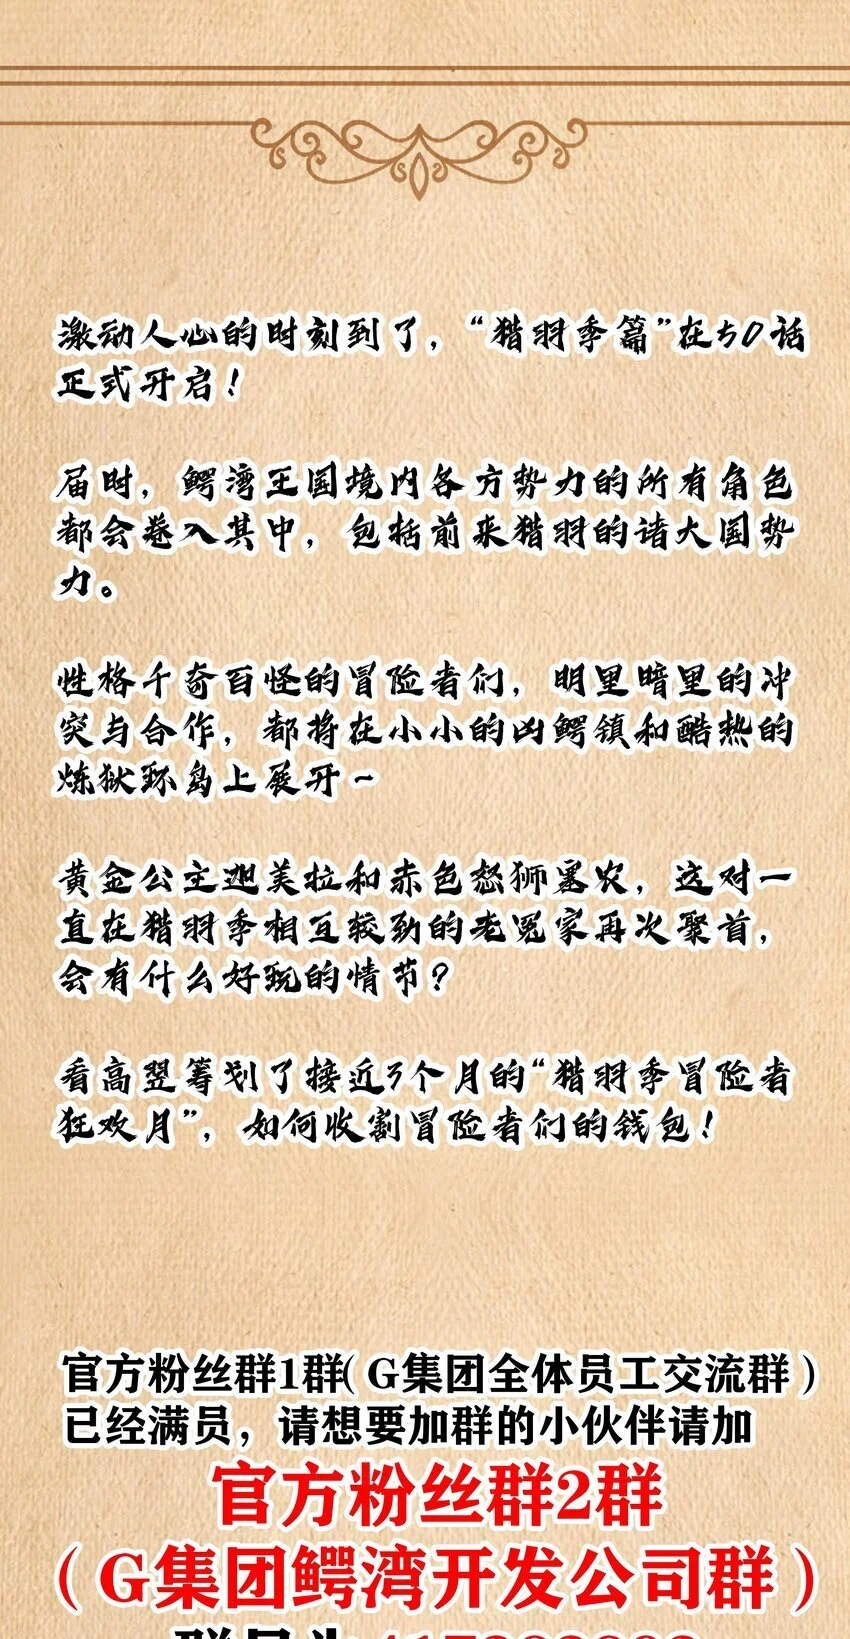 激动人心的时刻到了，“猎羽季篇”在50话
正式开启！
届时，鳄湾王国境内各方势力的所有角色
都会卷入其中，包括前来猎羽的诸大国势
力。
性格千奇百怪的冒险者们，明里暗里的冲
突与合作，都将在小小的凶鳄镇和酷热的
炼狱环岛上展开~
黄金公主迦美拉和赤色怒狮塞农，这对一
直在猎羽季相互较劲的老冤家再次聚首，
会有什么好玩的情节？
看高翌筹划了接近3个月的“猎羽季冒险者
狂欢月”，如何收割冒险者们的钱包！
官方粉丝群1群（G集团全体员工交流群）
已经满员，请想要加群的小伙伴请加
官方粉丝群2群
（G集团鳄湾开发公司群）